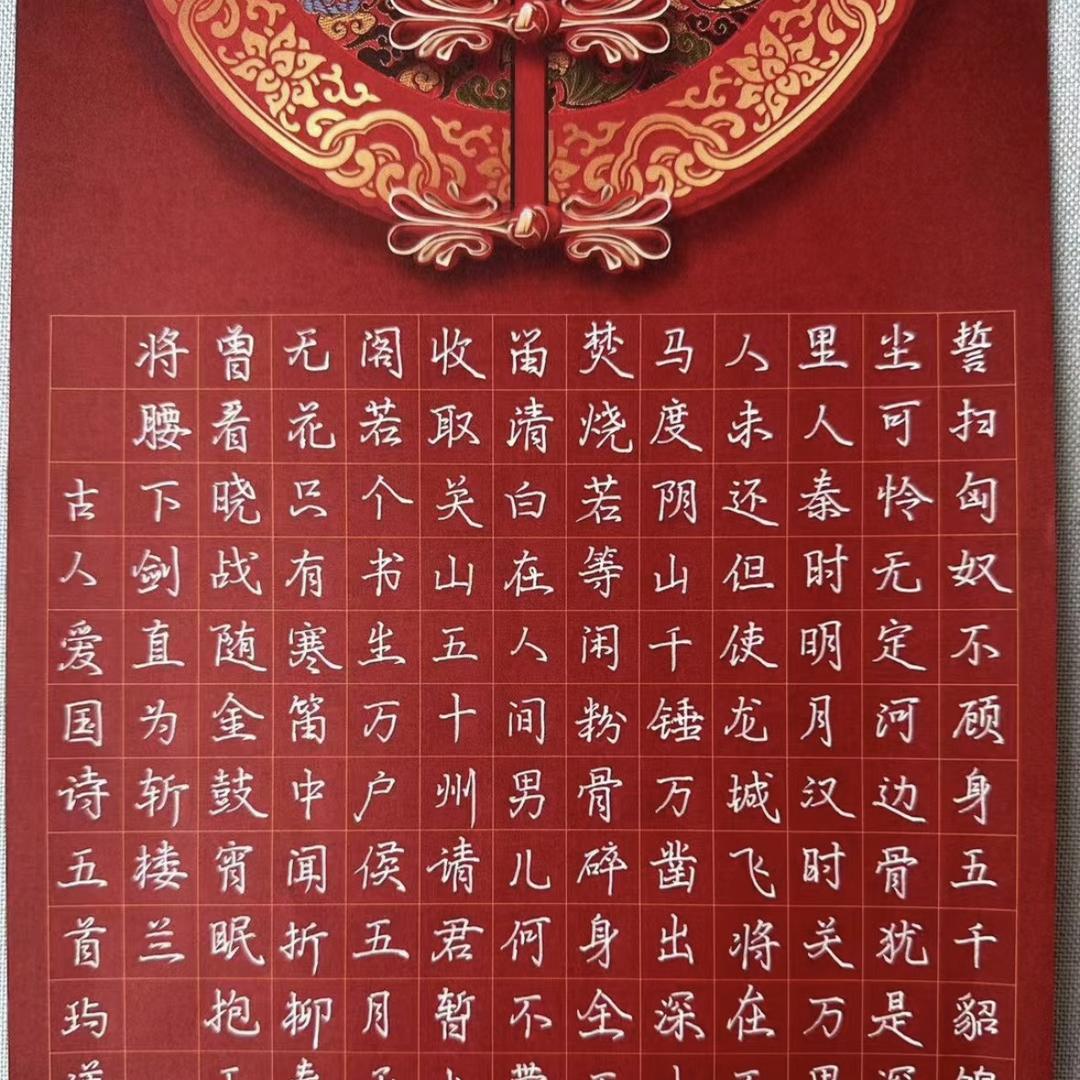 誓扫匈奴不顾身五千貂
尘可怜无定河边骨犹是
里人秦时明月汉时关万
人未还但使龙城飞将在
马度阴山千锤万凿出深
焚烧若等闲粉骨碎身全
留清白在人间男儿何不
收取关山五十州请君暂
阁若个书生万户侯五月
无花只有寒笛中闻折柳
曾看晓战随金鼓宵眠抱
将腰下剑直为斩楼兰
古人爱国诗五首玙